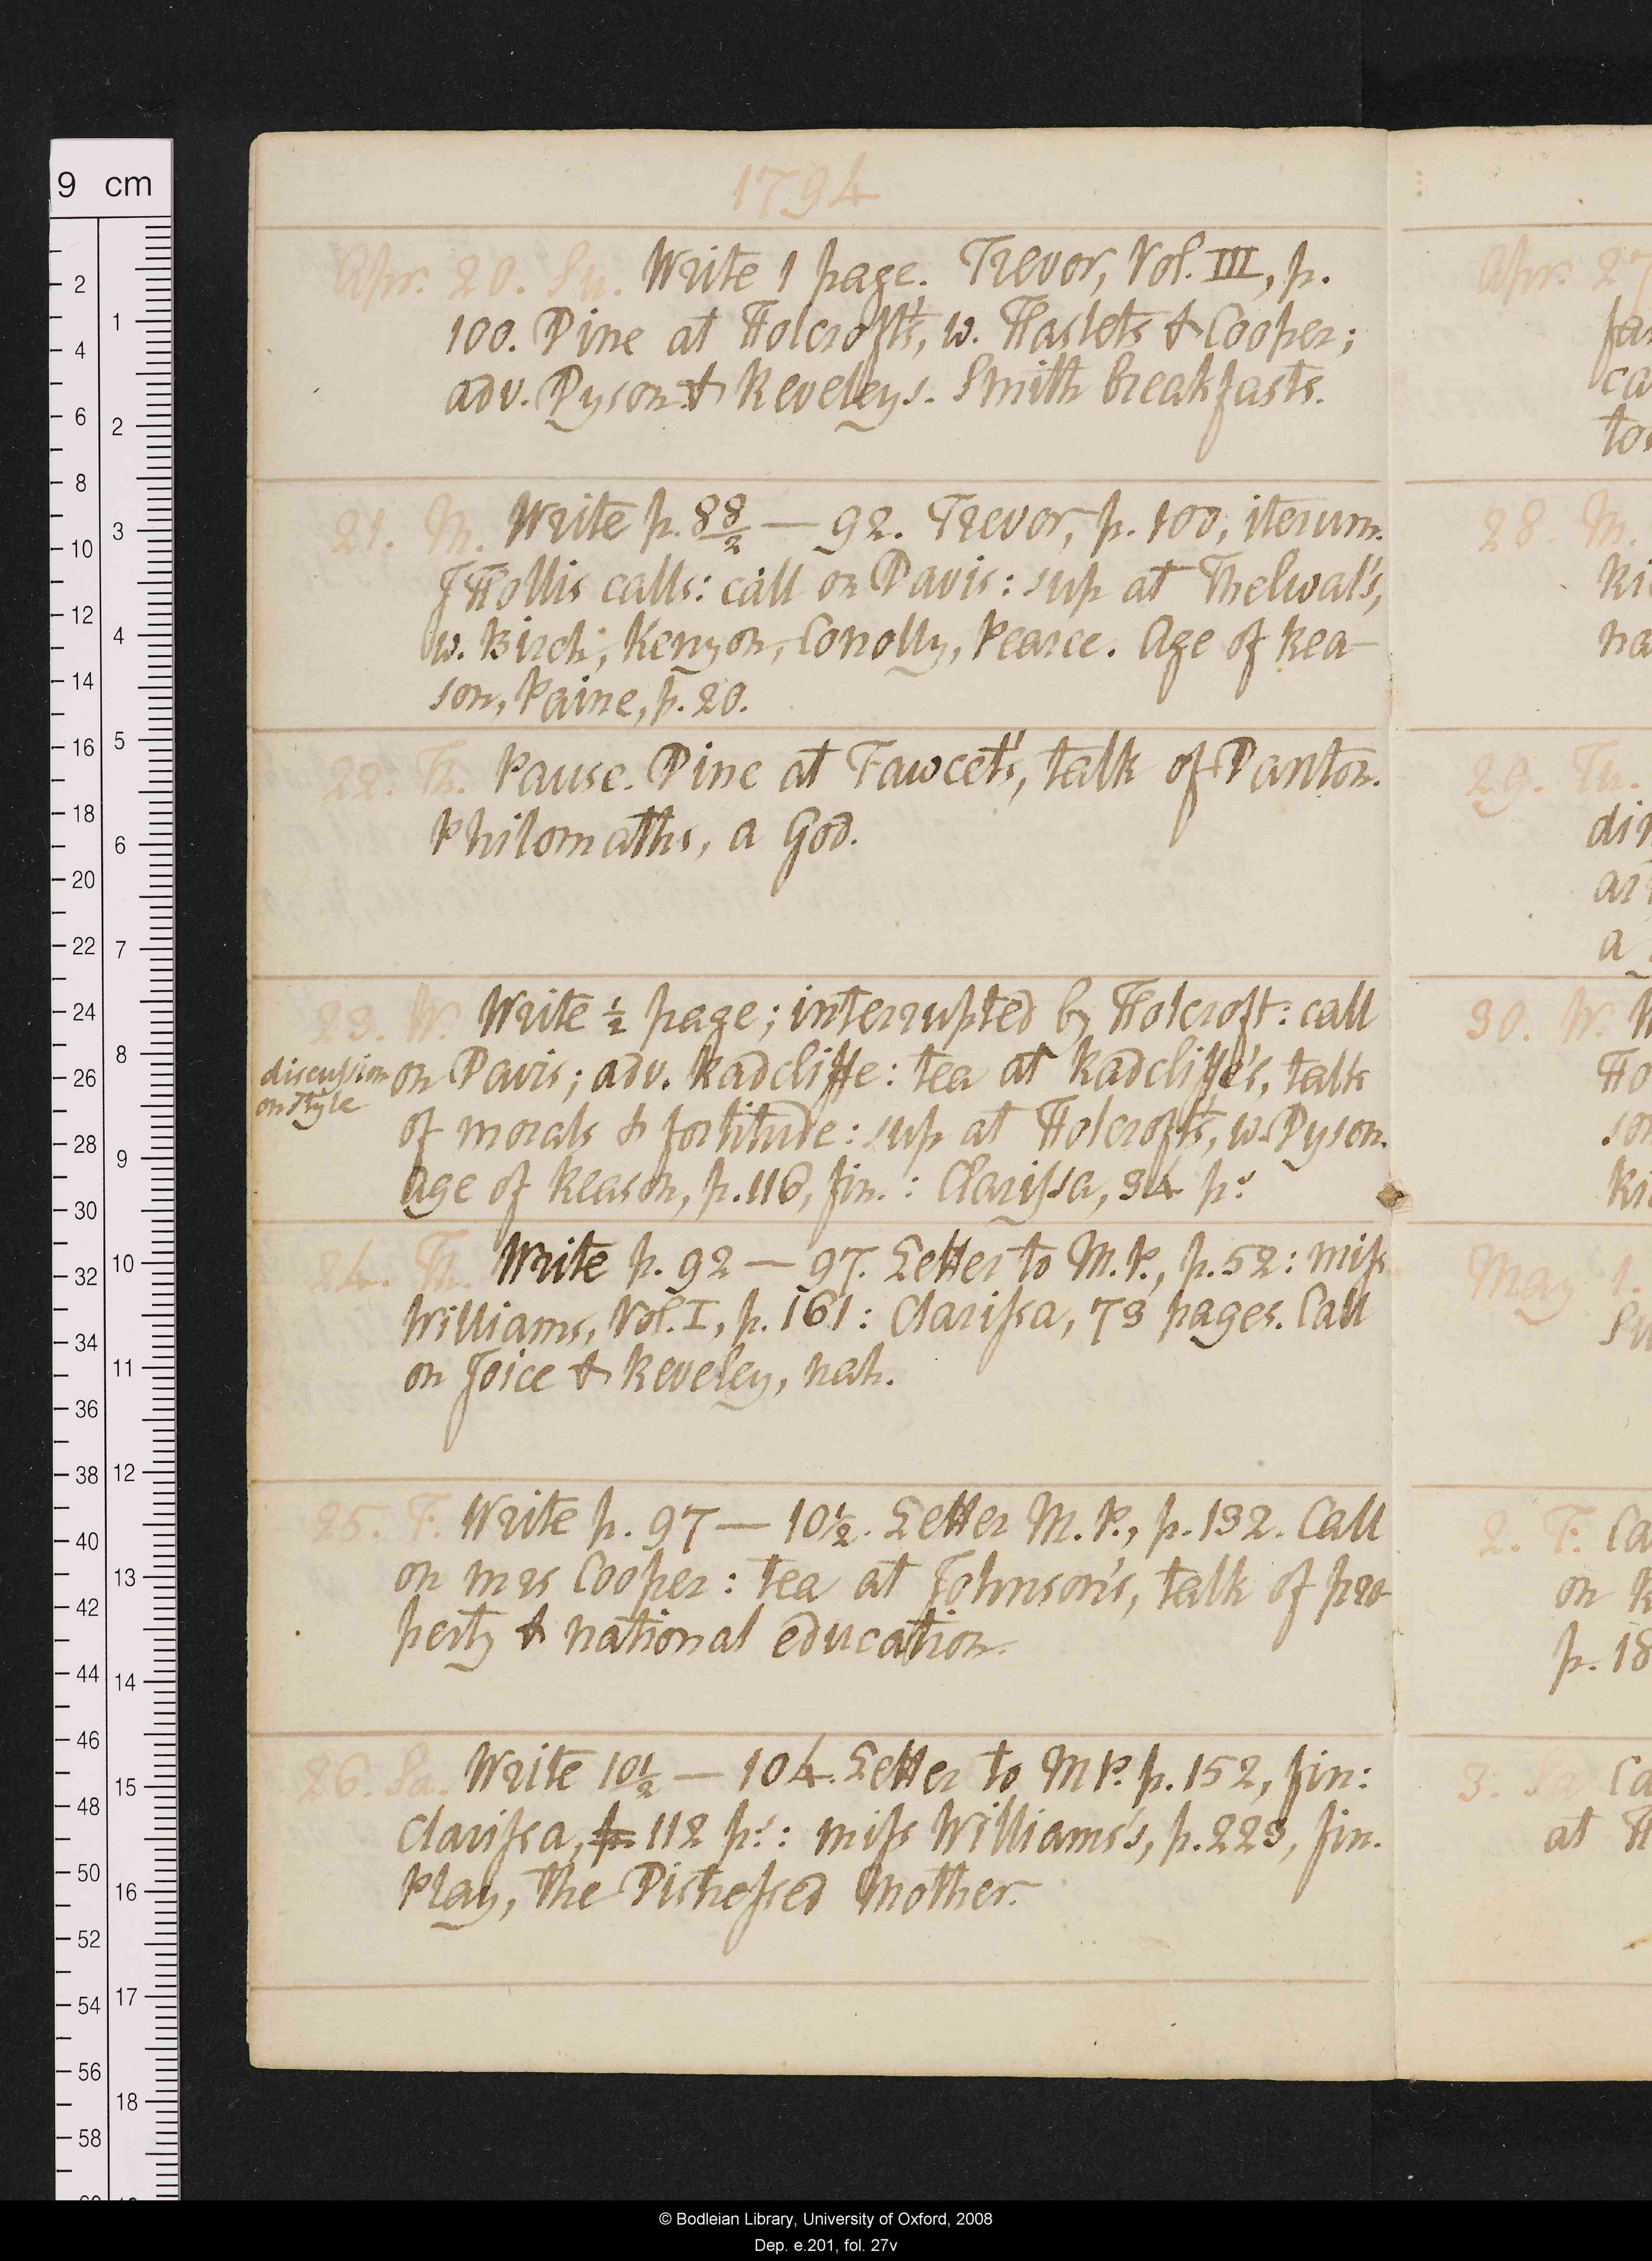 1794
Apr. 20. Su. Write 1 page. Trevor, Vol. III, p.
100. Dine at Holcroft's, w. Haslets & Cooper;
adv. Dyson & Reveleys. Smith breakfasts.
21. M. Write p. 88/2 — 92. Trevor, p. 100, iterum.
J Hollis calls: call on Davis: sup at Thelwal's,
w. Birch, Kenyon, Conolly, Pearce. Age of Rea-
son, Paine, p. 20.
22. Tu. Pause. Dine at Fawcet's, talk of Danton.
Philomaths, a God.
23. W. Write ½ page; interrupted by Holcroft: call
discussion on Davis; adv. Radcliffe: tea at Radcliffe's, talk
on style
of morals & fortitude: sup at Holcroft's, w. Dyson.
Age of Reason, p. 116, fin.: Clarissa, 34 ps
24. Th. Write p. 92 — 97. Letter to M. P., p. 52: miss
Williams, Vol. I, p. 161: Clarissa, 73 pages. Call
on Joice & Reveley, nah.
25. F. Write p. 97 — 101/2. Letter M. P., p. 132. Call
on mrs Cooper: tea at Johnson's, talk of pro-
perty & national education.
26. Sa. Write 101/2 — 104. Letter to M P. p. 152, fin:
Clarissa, p. 112 ps: miss Williams's, p. 223, fin.
Play, the Distressed Mother.
Apr. 27
ca
28. M.
na
29. Tu.
a
30. W.
Ho
son
May 1.
2. F. Ca
on R
p. 18
3. Sa Ca
at H
9 cm
2
4
6
8
10
12
14
16
18
20
22
24
26
28
30
32
34
36
38
40
42
44
46
48
50
52
54
56
58
1
2
3
4
5
6
7
8
9
10
11
12
13
14
15
16
17
18
© Bodleian Library, University of Oxford, 2008
Dep. e.201, fol. 27v